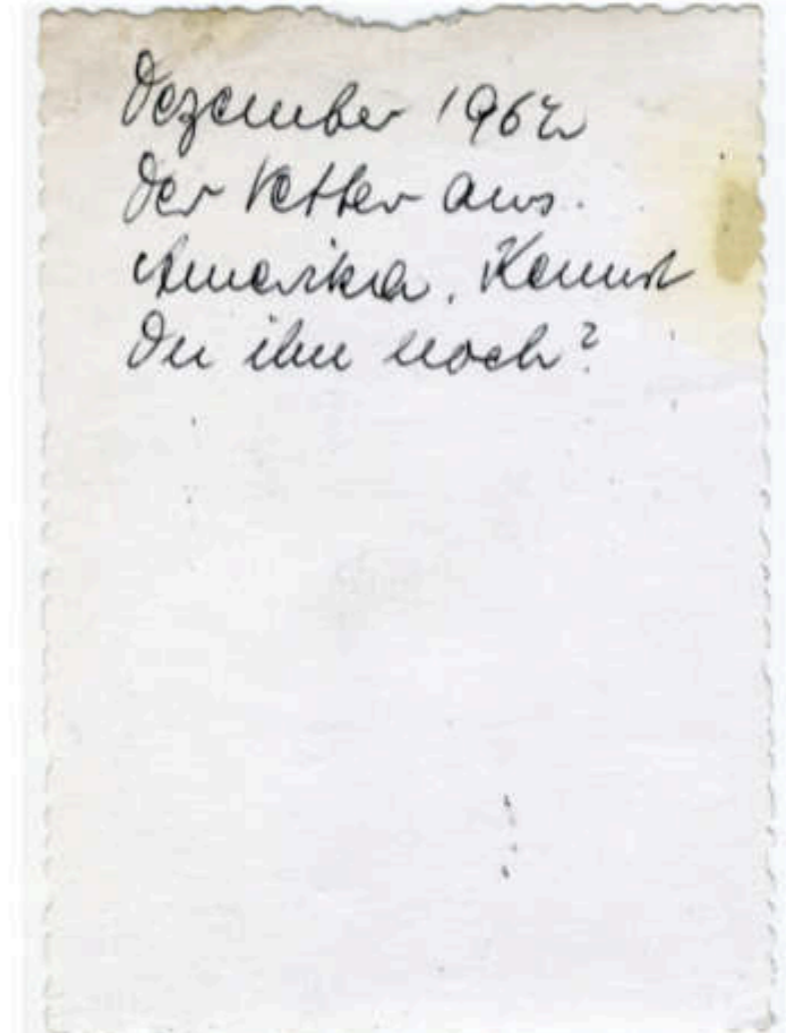 Dezember 1962
Der Vetter aus
Amerika. Kennst
Du ihn noch?